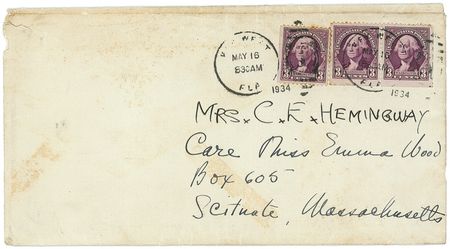 KEY WEST
MAY 16
830AM
FLA.
1934
3
3 3
1934
MRS. C. E. HEMINGWAY
Care Miss Emma Wood
Box 605
Scituate, Massachusetts